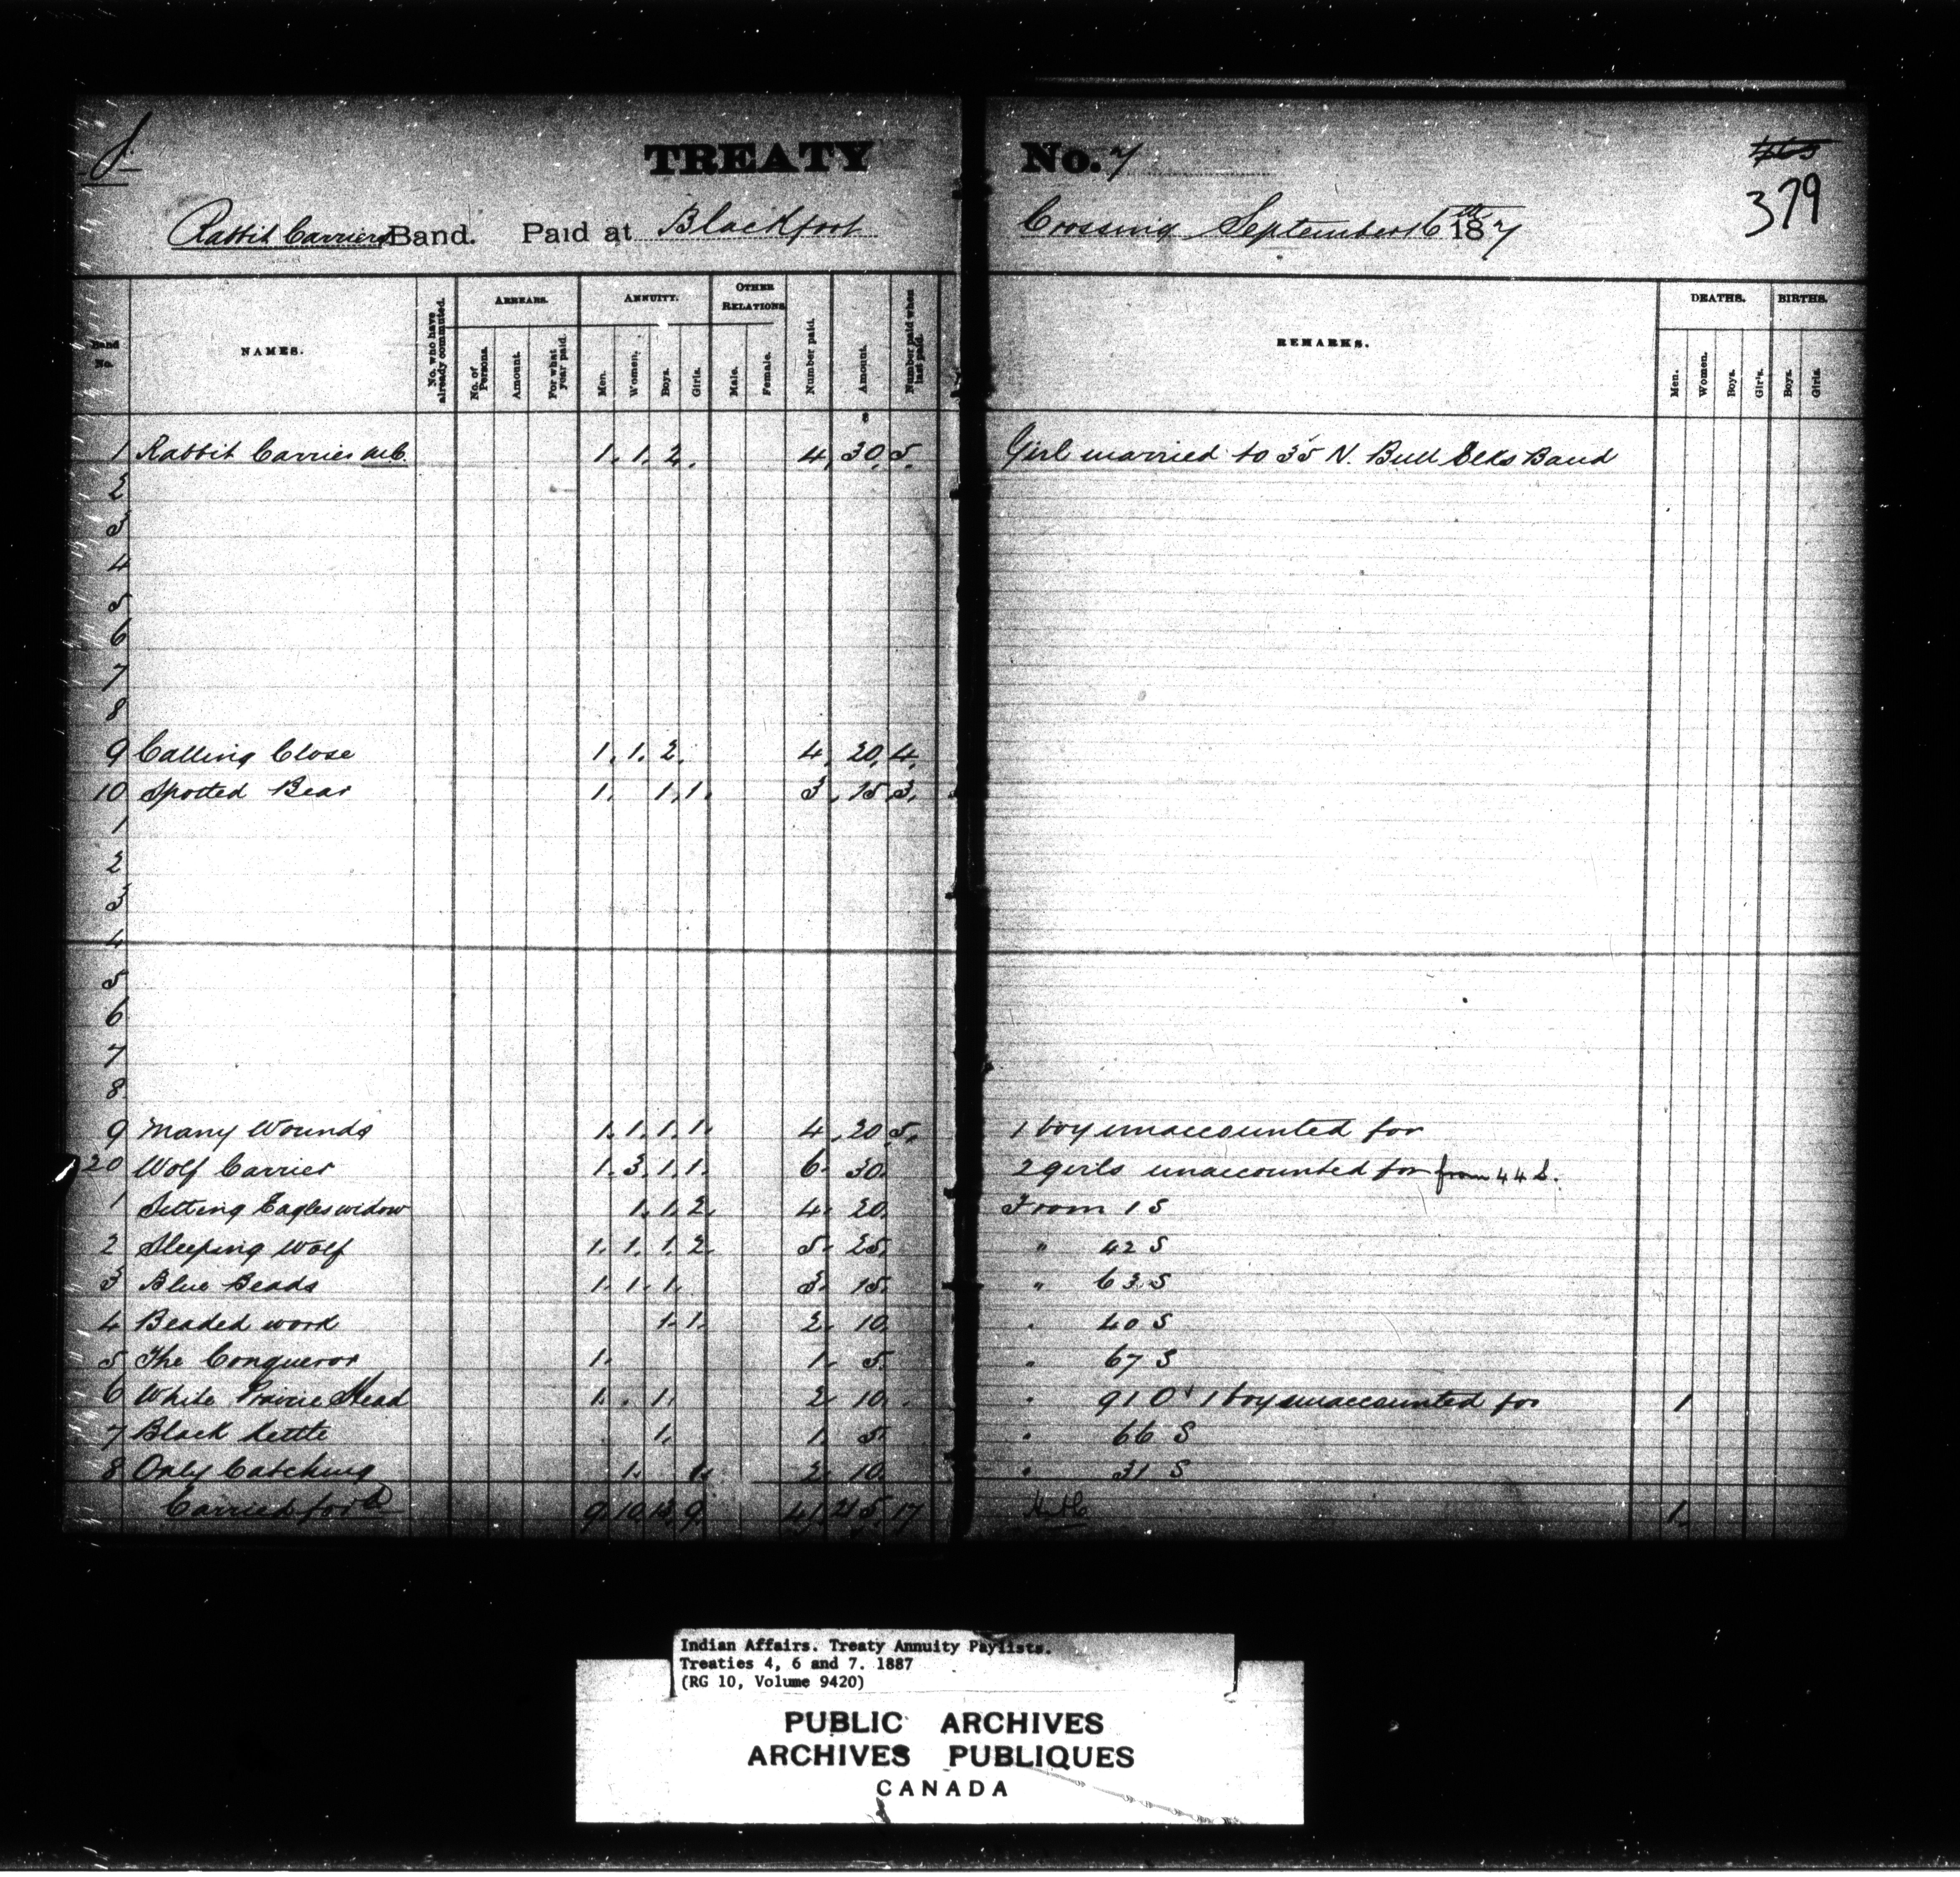 TREATY No. 7
465
379
Rabbit Carriers Band. Paid at Blackfoot Crossing September 16th 1887
Band No.
NAMES.
No. who have already commuted.
ARREARS.
No. of Persons.
Amount.
For what year paid.
ANNUITY.
Men.
Women.
Boys.
Girls.
OTHER RELATIONS
Male.
Female.
Number paid.
Amount.
Number paid when last paid.
REMARKS.
DEATHS.
Men.
Women.
Boys.
Girls.
BIRTHS.
Boys.
Girls.
1 Rabbit Carrier 1. 1. 2. 4. 30. 5. Girl married to 35 N. Bull Elks Band
2
3
4
5
6
7
8
9 Calling Close 1. 1. 2. 4. 20. 4.
10 Spotted Bear 1. 1. 1. 3. 15. 3.
1
2
3
4
5
6
7
8
9 Many Wounds 1. 1. 1. 1. 4. 20. 5. 1 boy unaccounted for
20 Wolf Carrier 1. 3. 1. 1. 6. 30. 2 girls unaccounted for from 44 S.
1 Sitting Eagles widow 1. 1. 2. 4. 20. From 1 S
2 Sleeping Wolf 1. 1. 1. 2. 5. 25. " 42 S
3 Blue Beads 1. 1. 1. 3. 15. " 63 S
4 Beaded work 1. 1. 2. 10. " 40 S
5 The Conqueror 1. 1. 5. " 67 S
6 White Prairie Head 1. 1. 2. 10. " 91 O 1 boy unaccounted for 1
7 Black kettle 1. 1. 5. " 66 S
8 Only Catching 1. 1. 2. 10. " 31 S
Carried for'd 9. 10. 13. 9. 41. 215. 17 1.
Indian Affairs. Treaty Annuity Paylists.
Treaties 4, 6 and 7. 1887
(RG 10, Volume 9420)
PUBLIC ARCHIVES
ARCHIVES PUBLIQUES
CANADA